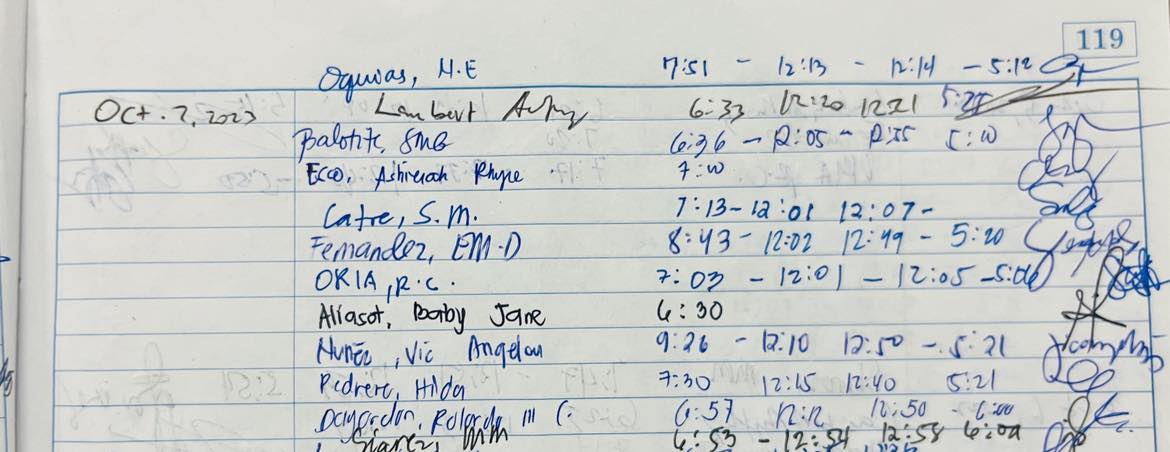 119
Oquias, M.E 7:51 - 12:13 - 12:14 - 5:12
Oct. 2, 2023 Lambert 6:33 12:20 12:21 5:25
Balotite, SMB 6:36 - 12:05 - 12:55 5:10
Eco, Rhyne 7:00
Catre, S.M. 7:13-12:01 12:07-
Fernandez, EM.D 8:43 - 12:02 12:49 - 5:20
ORIA, R.C. 7:03 - 12:01 - 12:05 -5:06
Aliasot, Baby Jane 6:30
Nuñez, Vic Angelou 9:26 - 12:10 12:50 - 5:21
Pedrero, Hilda 7:30 12:15 12:40 5:21
III 6:57 12:12 12:50 - 6:00
6:53 - 12:54 12:58 6:02